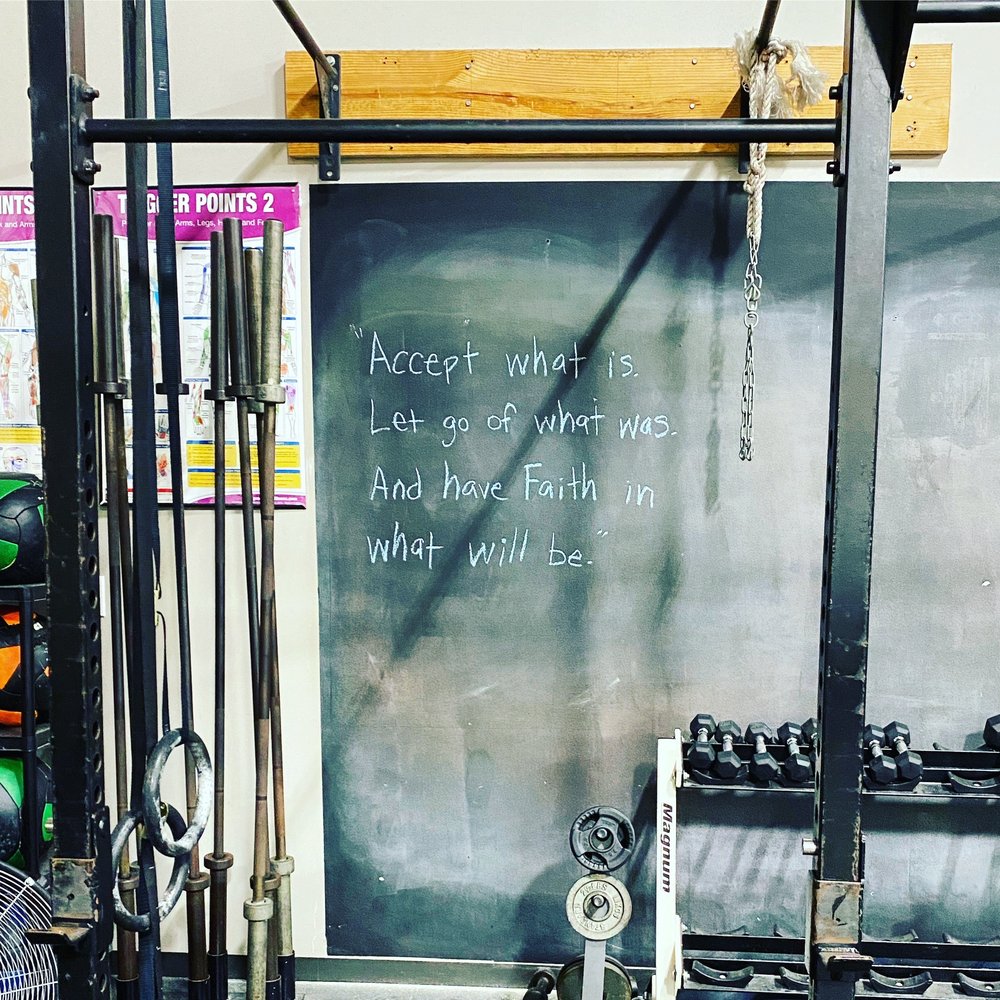 TRIGGER POINTS 2
Arms, Legs,
"Accept what is.
Let go of what was.
And have Faith in
what will be."
Magnum